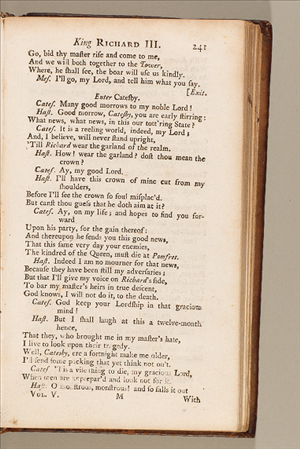 King RICHARD III. 241
Go, bid thy master rise and come to me,
And we will both together to the Tower,
Where, he shall see, the boar will use us kindly.
Mes. I'll go, my Lord, and tell him what you say.
[Exit.
Enter Catesby.
Cates. Many good morrows to my noble Lord!
Hast. Good morrow, Catesby, you are early stirring:
What news, what news, in this our tott'ring State?
Cates. It is a reeling world, indeed, my Lord;
And, I believe, will never stand upright,
'Till Richard wear the garland of the realm.
Hast. How! wear the garland? dost thou mean the
crown?
Cates. Ay, my good Lord.
Hast. I'll have this crown of mine cut from my
shoulders,
Before I'll see the crown so foul misplac'd.
But canst thou guess that he doth aim at it?
Cates. Ay, on my life; and hopes to find you for-
ward
Upon his party, for the gain thereof:
And thereupon he sends you this good news,
That this same very day your enemies,
The kindred of the Queen, must die at Pomfret.
Hast. Indeed I am no mourner for that news,
Because they have been still my adversaries;
But that I'll give my voice on Richard's side,
To bar my master's heirs in true descent,
God knows, I will not do it, to the death.
Cates. God keep your Lordship in that gracious
mind!
Hast. But I shall laugh at this a twelve-month
hence,
That they, who brought me in my master's hate,
I live to look upon their tragedy.
Well, Catesby, ere a fortnight make me older,
I'll send some packing that yet think not on't.
Cates. 'Tis a vile thing to die, my gracious Lord,
When men are unprepar'd and look not for it.
Hast. O monstrous, monstrous! and so falls it out
VOL. V. M With